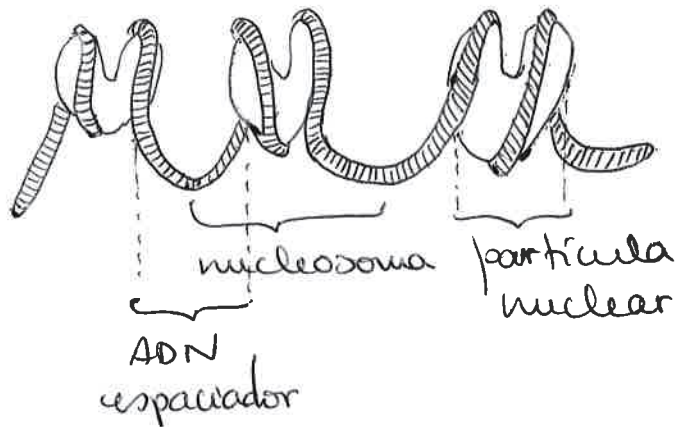 nucleosoma
partícula
nuclear
ADN
espaciador